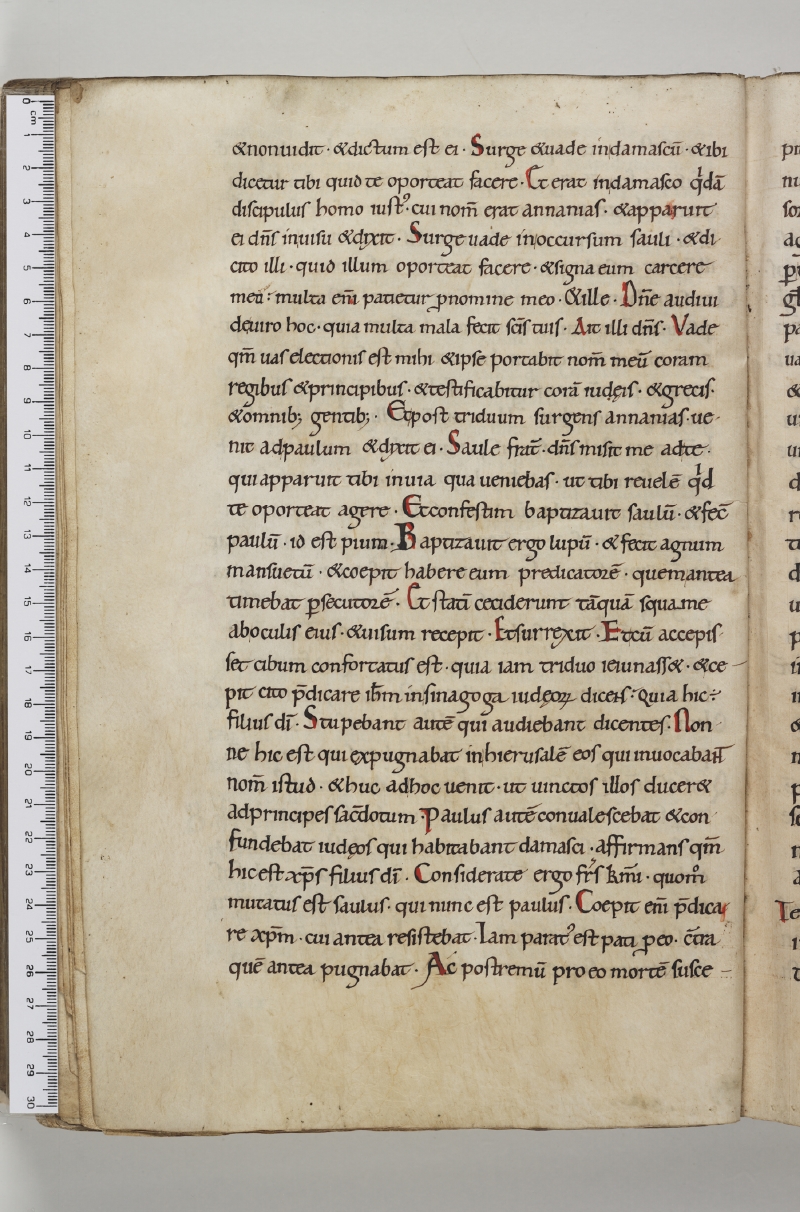 &nonuidit · &dictum est ei · Surge &uade indamascū · &ibi
dicetur tibi quid te oporteat facere · Et erat indamasco qdā
discipulus homo iust᾽ · cui nom̄ erat annanias · &apparuit
ei dn̄s inuisu &dixit · Surge uade inoccursum sauli · &di
cito illi · quid illum oporteat facere · &signa eum carcere
meū : multa eni̅ patietur ꝓnomine meo · &ille · Dn̄e audiui
deuiro hoc · quia multa mala fecit sc̄is tuis · Ait illi dn̄s · Vade
qm̄ uas electionis est mihi &ipse portabit nom̄ meū coram
regibus &principibus · &testificabitur corā iudęis · &grecis ·
&omnib; gentib; · Etpost triduum surgens annanias · ue
nit adpaulum &dixit ei · Saule frat̄ · dn̄s misit me adte ·
qui apparuit tibi inuia qua ueniebas · ut tibi reuelē qd
te oporteat agere · Etconfestim baptizauit saulū · &fec̄
paulū · id est pium · Baptizauit ergo lupū · &fecit agnum
mansuetū · &coepit habere eum predicatorē · quemantea
timebat ꝑsecutorē · Et statī ceciderunt tāquā squame
aboculis eius · &uisum recepit · Etsurrexit · Etcū accepis
set cibum confortatus est · quia iam triduo ieiunass& · &ce
pit cito p̄dicare ih̄m insinagoga iudęoꝝ dicens : Quia hic ÷
filius dī · Stupebant autē qui audiebant dicentes · Non
ne hic est qui expugnabat inhierusalē eos qui inuocabant
nom̄ istud · &huc adhoc uenit · ut uinctos illos ducer&
adprincipes sac̄dotum · Paulus autē conualescebat &con
fundebat iudęos qui habitabant damasci · affirmans qm̄
hic est xp̄s filius dī · Considerate ergo fr̄s k̄mi · quom̊
mutatus est saulus · qui nunc est paulus · Coepit eni̅ p̄dica
re xp̄m · cui antea resistebat · Iam parat᾽ est pati ꝓeo · c̄tra
quē antea pugnabat · Ac postremū pro eo mortē susce